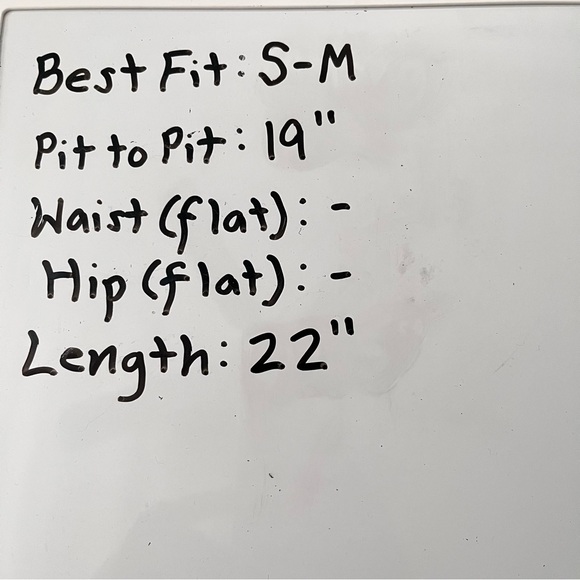 Best Fit: S-M
Pit to Pit: 19"
Waist (flat): -
Hip (flat): -
Length: 22"